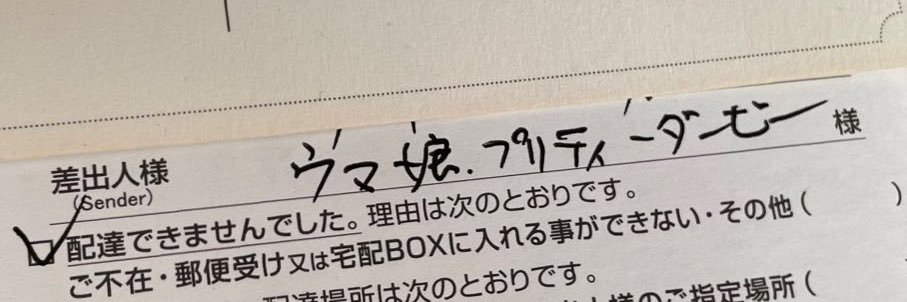 差出人様 ウマ娘.プリティーダービー 様
(Sender)
配達できませんでした。理由は次のとおりです。
ご不在・郵便受け又は宅配BOXに入れる事ができない・その他(          )
配達場所は次のとおりです。
様のご指定場所(